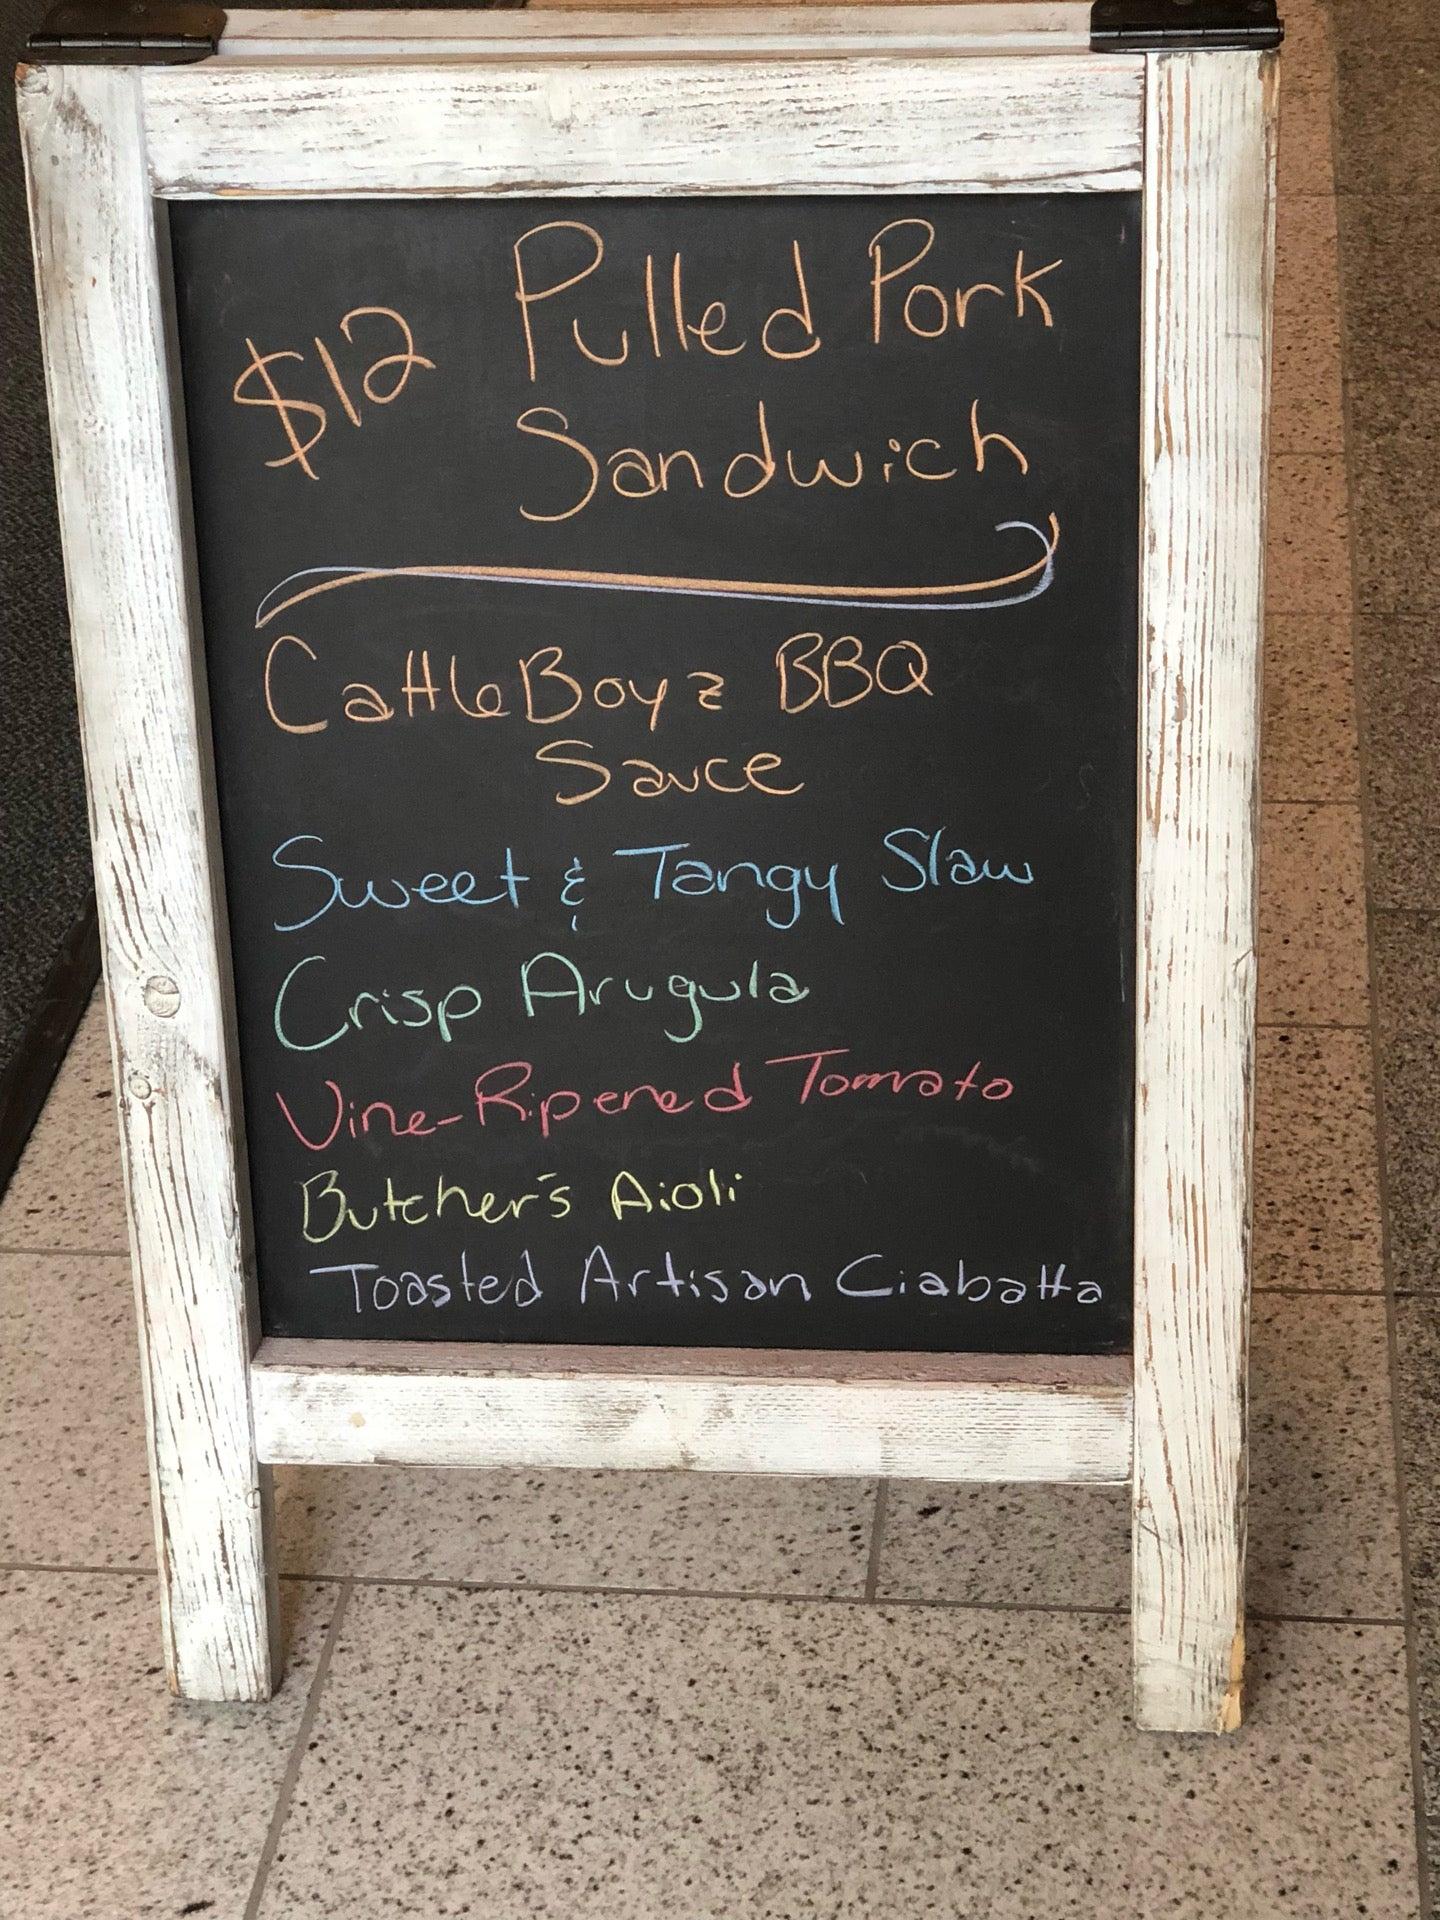 $12 Pulled Pork
Sandwich
CattleBoyz BBQ
Sauce
Sweet & Tangy Slaw
Crisp Arugula
Vine-Ripened Tomato
Butcher's Aioli
Toasted Artisan Ciabatta